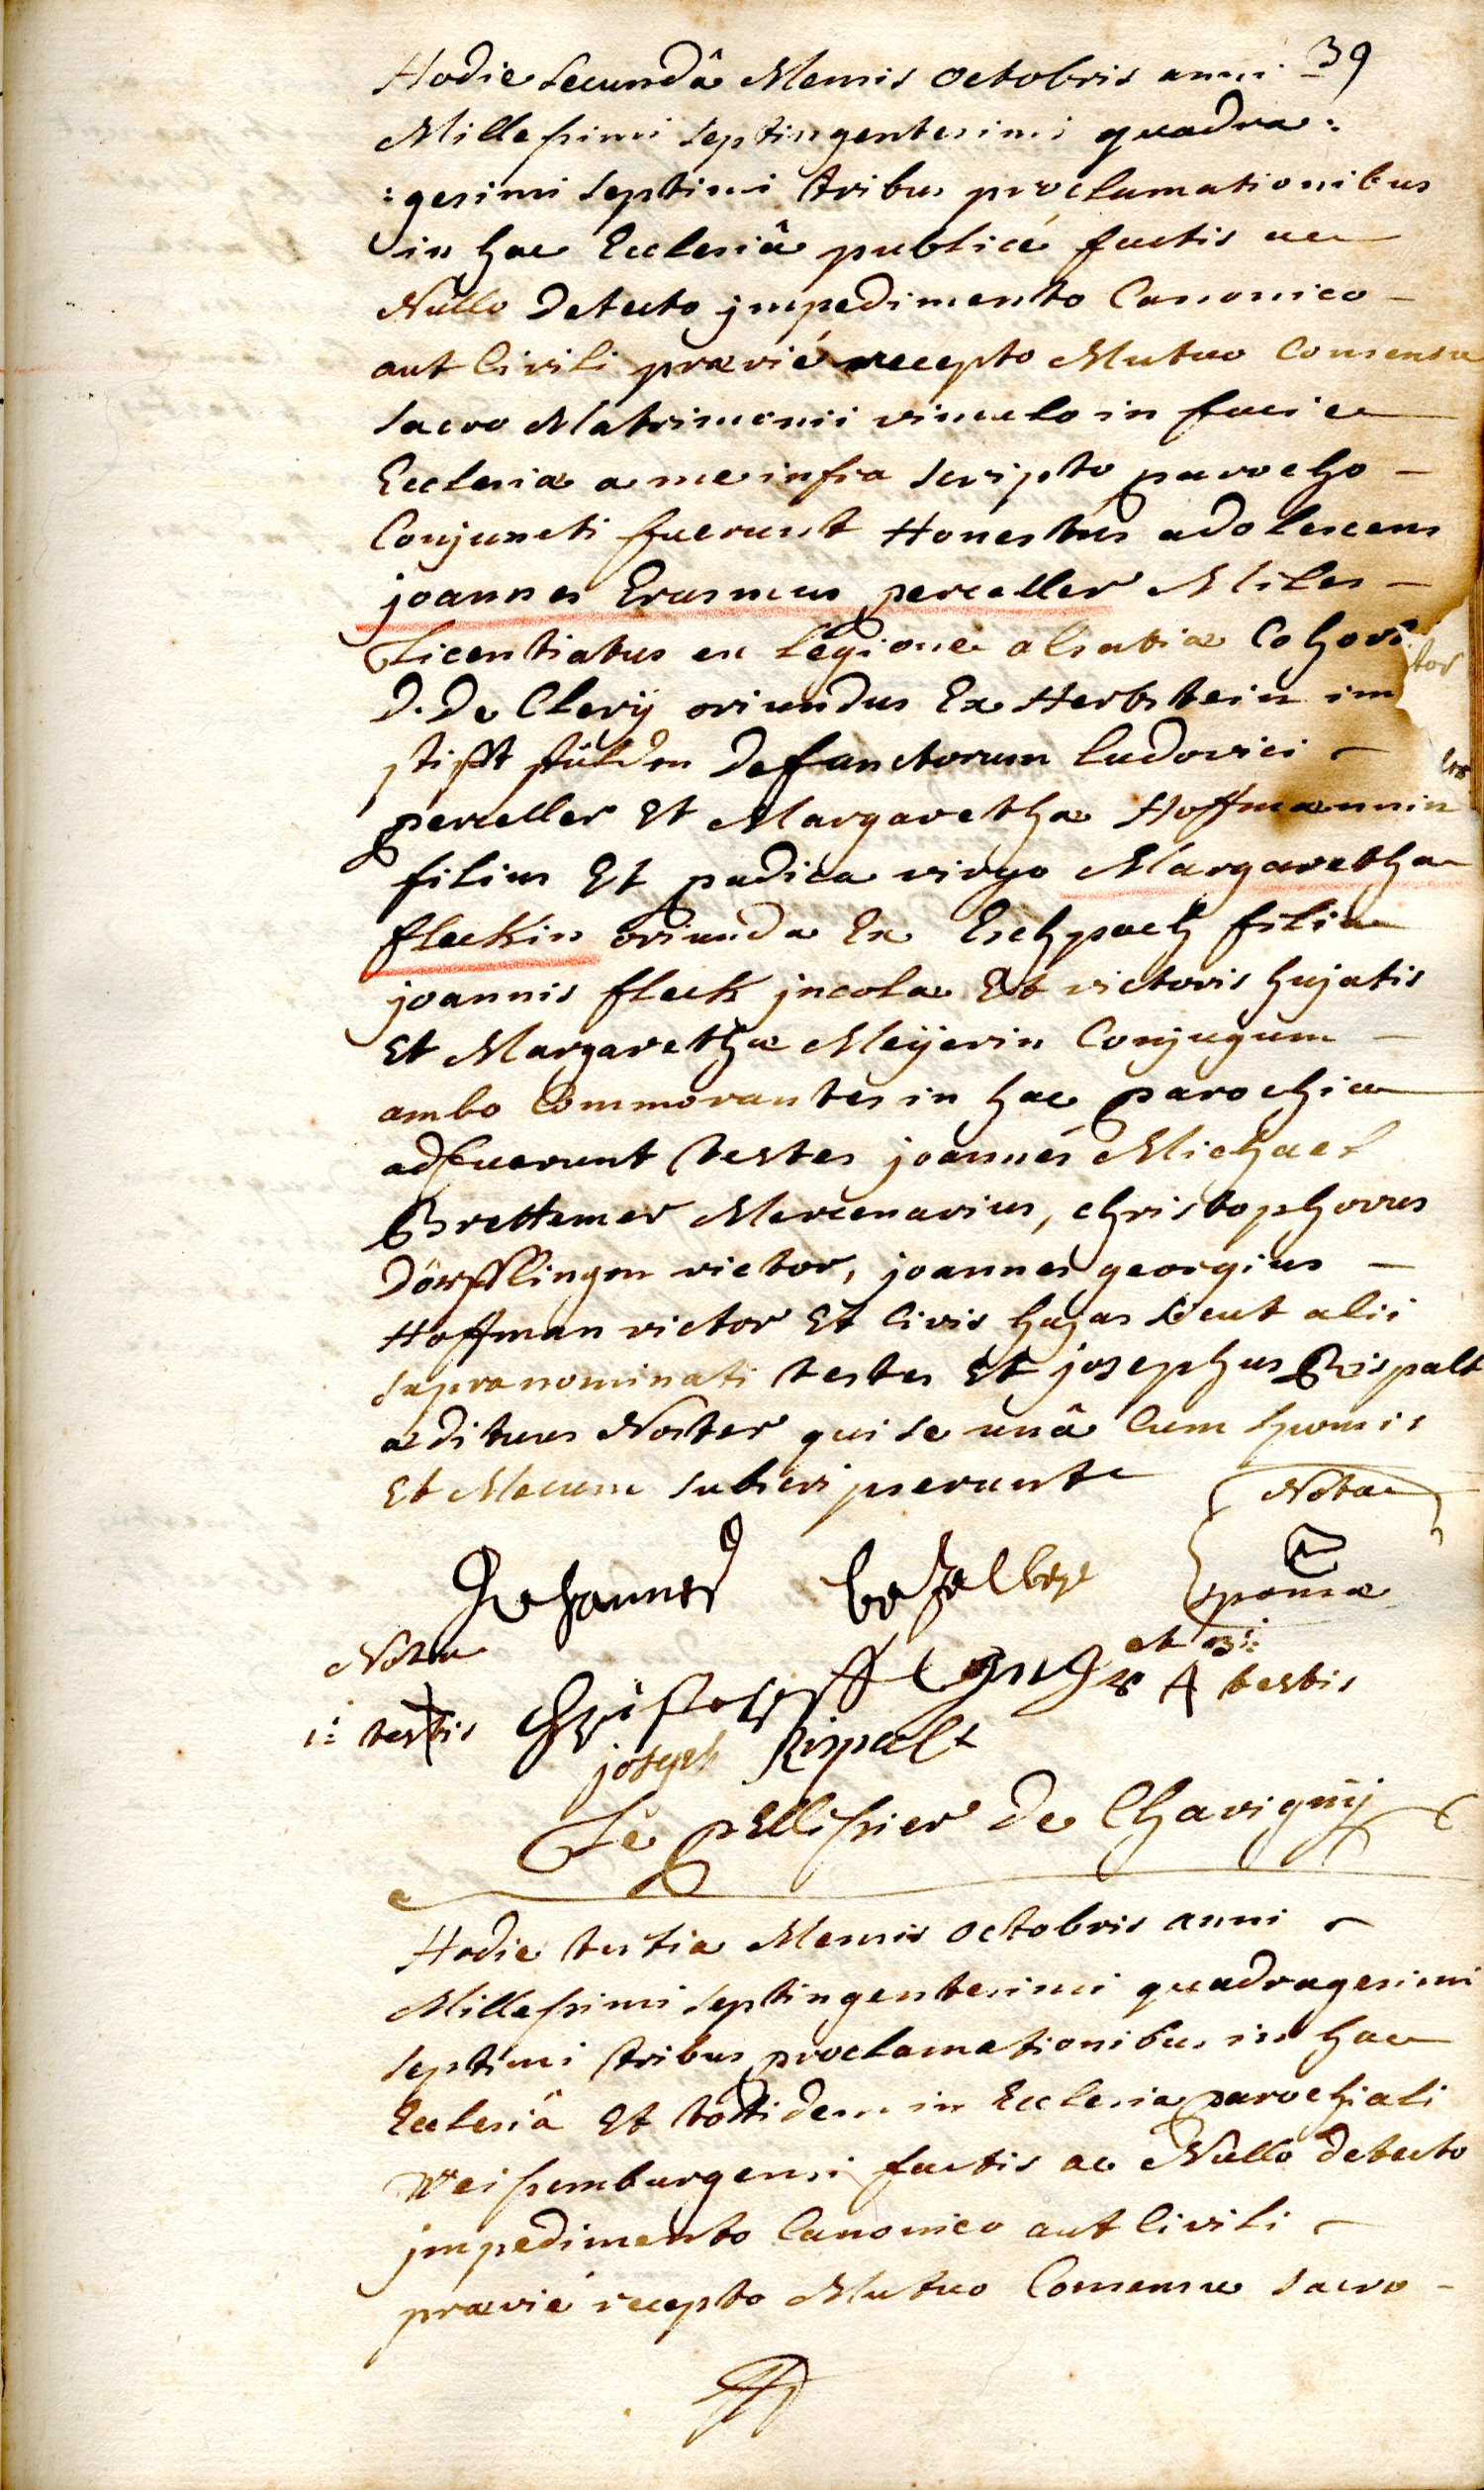 39
Hodie secundâ Mensis octobris anni
Millesimi septingentesimi quadra:
:gesimi septimi tribus proclamationibus
in hac Ecclesiâ publicé factis ac
Nullo detecto jmpedimento Canonico
aut Civili prævié recepto Mutuo Consensu
sacro Matrimonii vinculo in facie
Ecclesiæ a me infra scripto parocho
Conjuncti fuerunt Honestus adolescens
joannes Erasmus perceller Miles
Licentiatus ex Legione alsatiæ
D. De Clery oriundus Ex Herbstein im
stifft fulden defunctorum Ludovici
perceller Et Margarethæ Hoffmannin
filius Et pudica virgo Margaretha
fleckin oriunda Ex Eschpach filia
joannis fleck jncolæ Et victoris hujatis
Et Margarethæ Meÿerin Conjugum
ambo Commorantes in hac parochia
adfuerunt testes joannes Michael
Brettemer Mercenarius, christophorus
Dörfflingen victor, joannes georgius
Hoffman victor Et Civis hujas sicut alii
supranominati testes Et josephus Rispalt
ædituus Noster qui se unâ Cum sponsis
Et Mecum subscripserunt
Nota
Johannes
sponsæ
Nota
et 3i:
1: testis
testis
joseph Rispalt
Le pellissier de Chavignÿ
Hodie tertia Mensis octobris anni
Millesimi septingentesimi quadragesimi
septimi tribus proclamationibus in hac
Ecclesiâ Et totidem in Ecclesia parochiali
Weissemburgensi factis ac Nullo detecto
jmpedimento Canonico aut Civili
prævié recepto Mutuo Consensu sacro